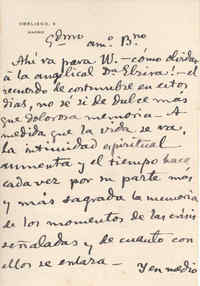 OBELISCO, 8
MADRID
Gdmo am.º B.no
Ahí va para W. – cómo olvidar
á la angelical D.ª Elvira! – el
recuerdo de costumbre en estos
días, no sé si de dulce más
que dolorosa memoria. A
medida que la vida se va,
la intimidad espiritual
aumenta y el tiempo hace
cada vez por su parte más
y más sagrada la memoria
de los momentos de las crisis
señaladas y de cuanto con
ellos se enlaza. – Y en medio